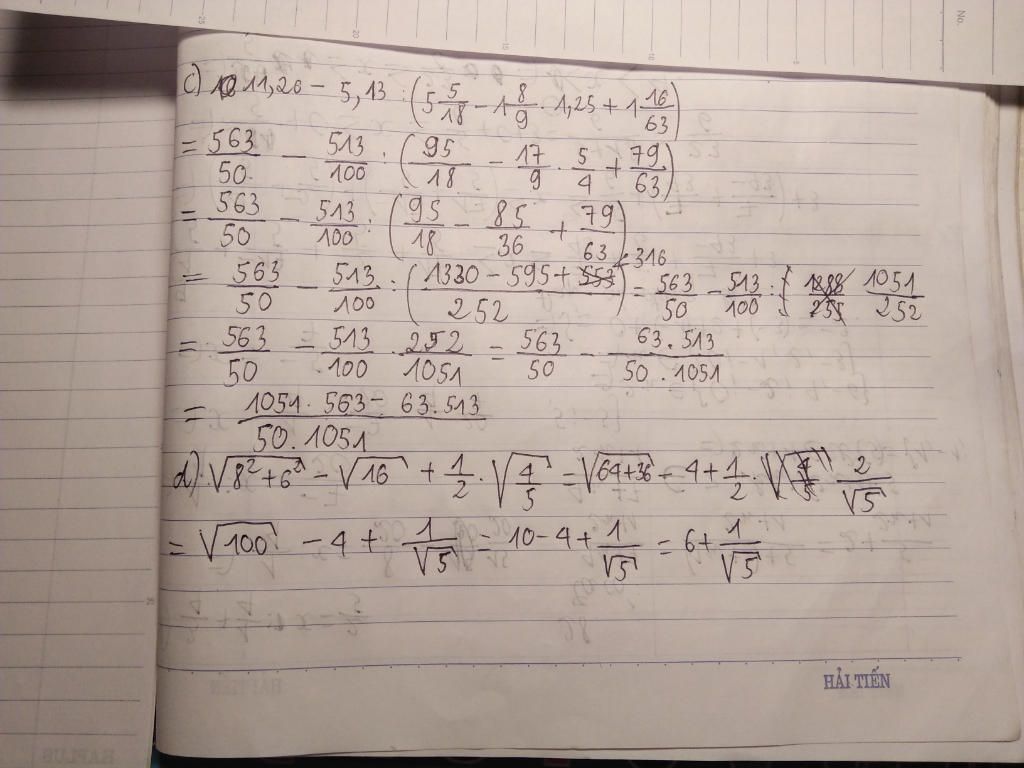 No.
25 20 15 10
c) 11,26 - 5,13 : (5 5/18 - 1 8/9 . 1,25 + 1 16/63)
= 563/50 - 513/100 : (95/18 - 17/9 . 5/4 + 79/63)
= 563/50 - 513/100 : (95/18 - 85/36 + 79/63)
= 563/50 - 513/100 : ((1330 - 595 + 316)/252) = 563/50 - 513/100 : 1051/252
= 563/50 - 513/100 . 252/1051 = 563/50 - (63.513)/(50.1051)
= (1051.563 - 63.513)/(50.1051)
d) √(8²+6²) - √16 + 1/2 . √(4/5) = √(64+36) - 4 + 1/2 . 2/√5
= √100 - 4 + 1/√5 = 10 - 4 + 1/√5 = 6 + 1/√5
HẢI TIẾN